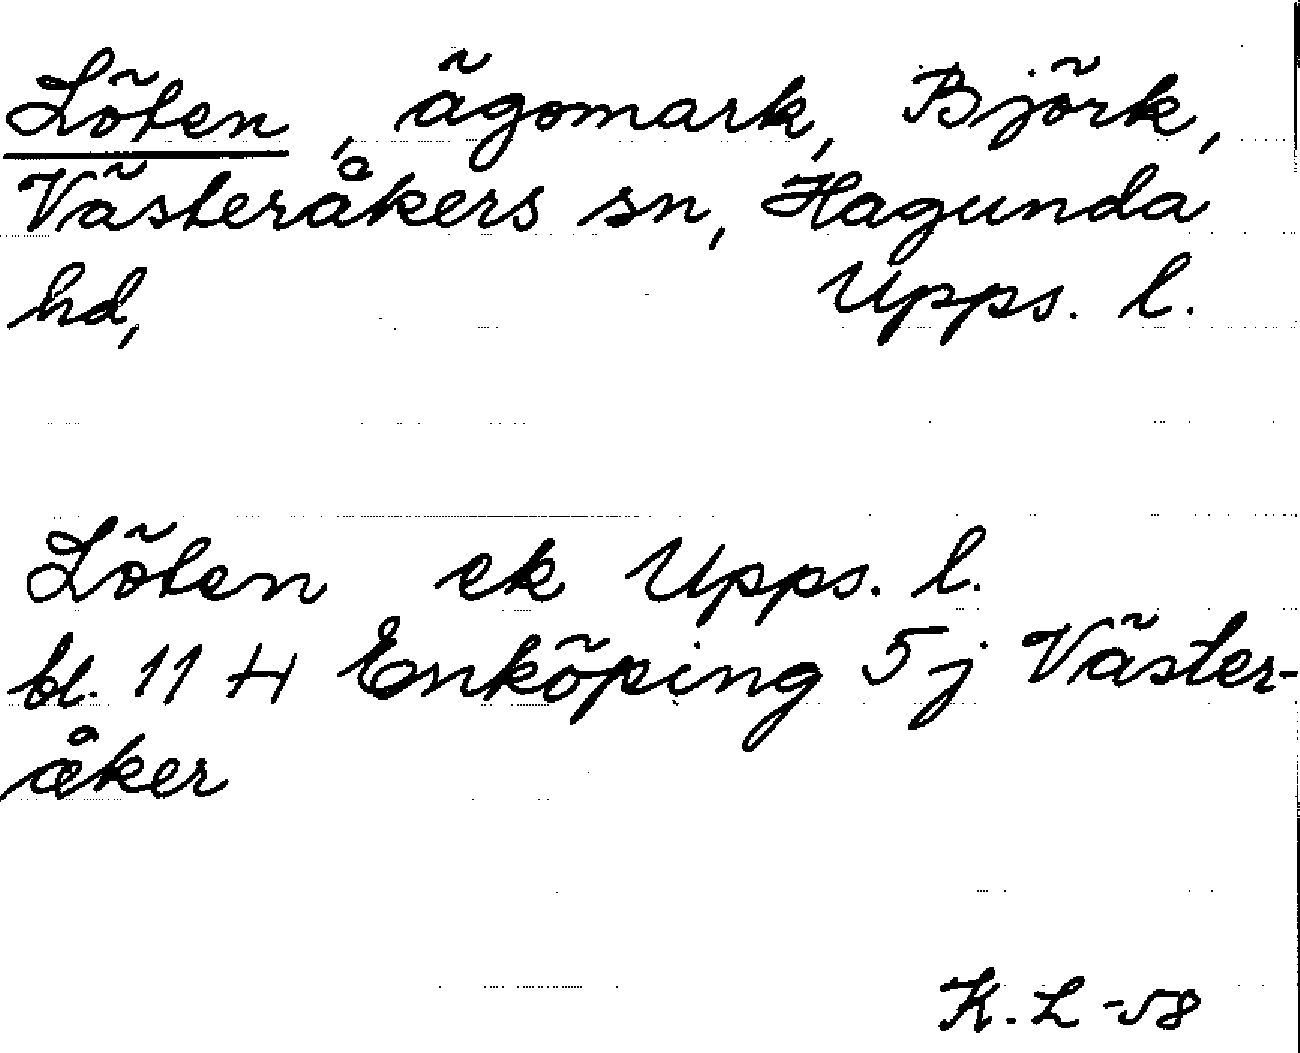 Löten, ägomark, Björk,
Västeråkers sn, Hagunda
hd, Upps. l.
Löten ek Upps. l.
bl. 11 H Enköping 5j Väster-
åker
K. L -58